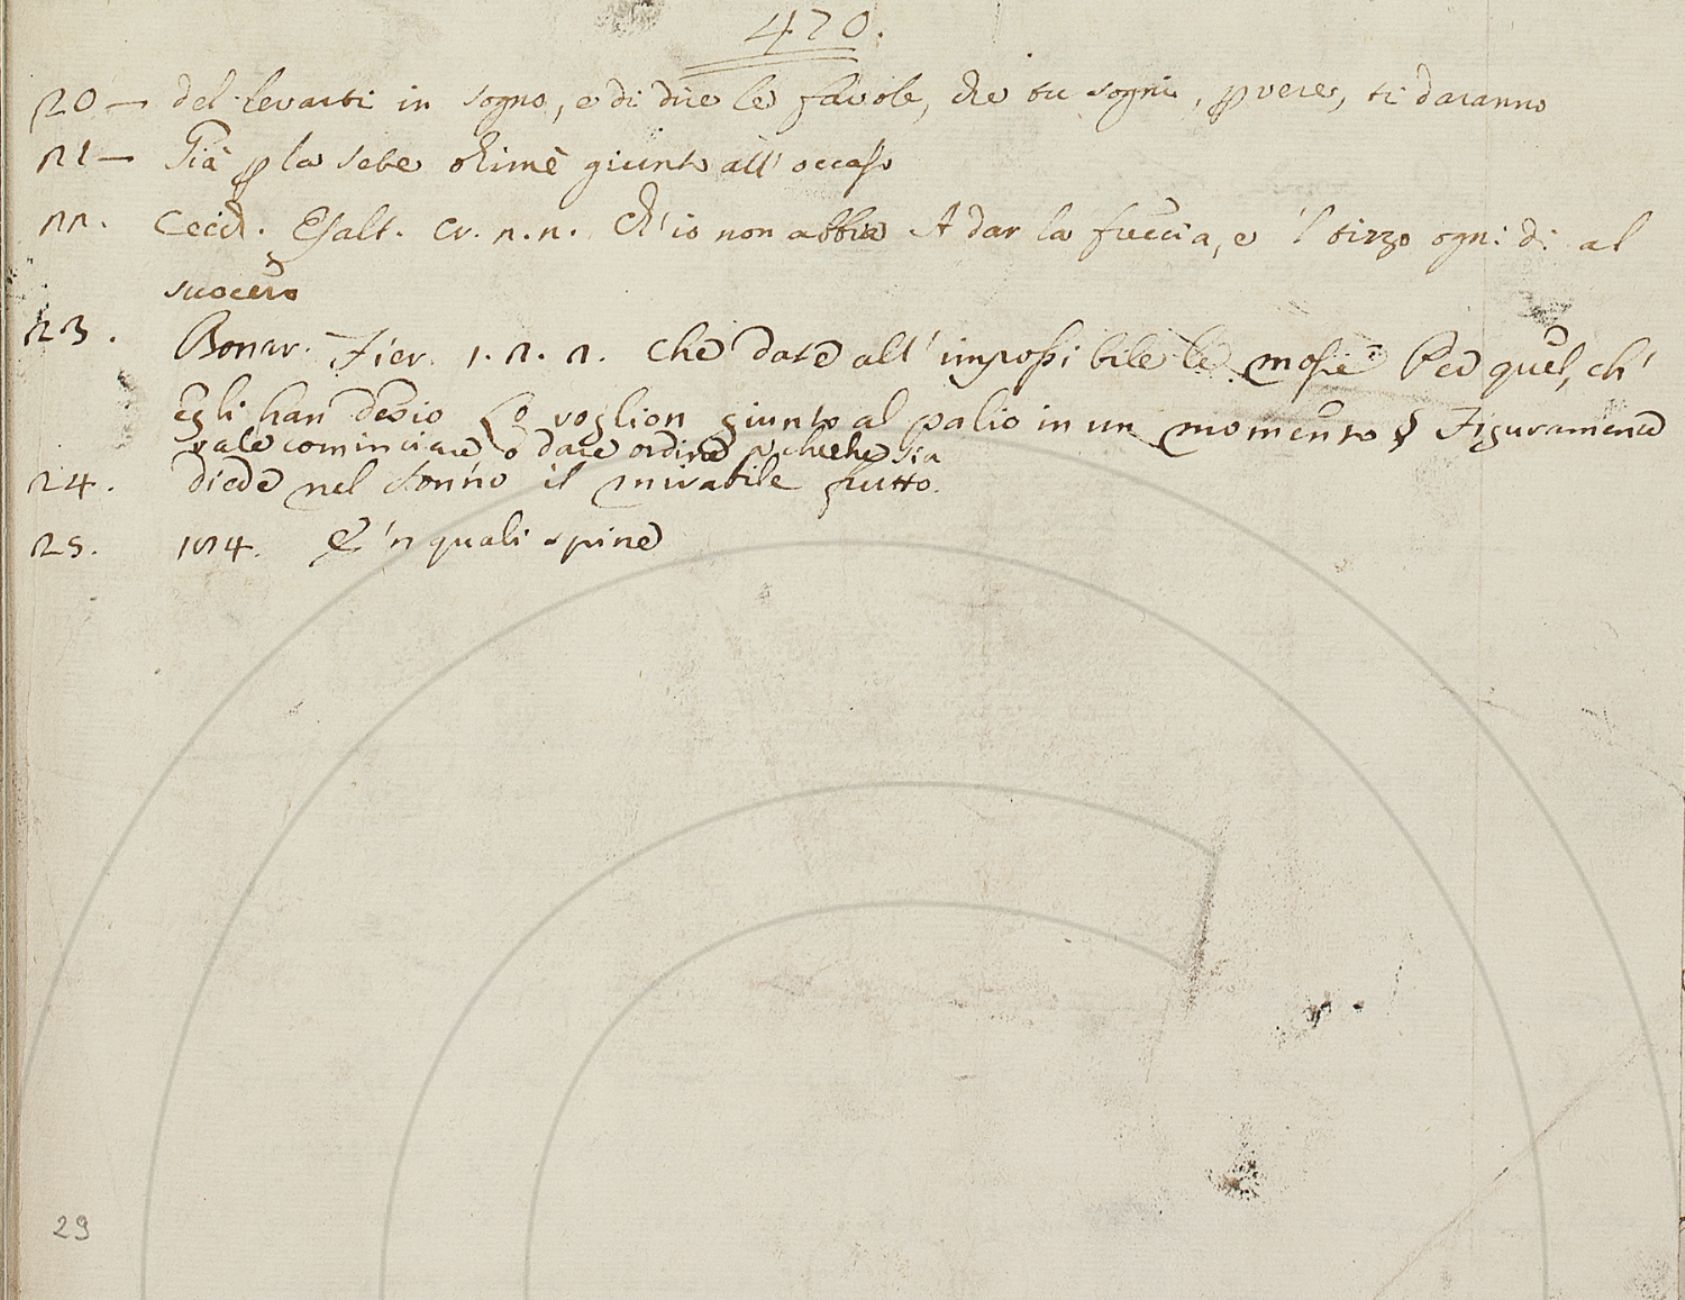 470.
20 — del levarti in sogno, e di dire le favole, che tu sogni, ꝑ vere, ti daranno
21 — Già ꝑ la sete ohimè giunto all' occaso
22. Cecch. Esalt. Cr. 2.2. Ch' io non abbia A dar la freccia, e 'l tirzo ogni dì al
suocero
23. Bonar. Fier. 1.2.2. Che date all' impossibile le mosse Per quel, ch'
Egli han desio Lo voglion giunto al palio in un momento § Figuramente
vale cominciare o dare ordine a checche sia
24. diede nel sonno il mirabile frutto.
25. 174. E 'n quali spine
29